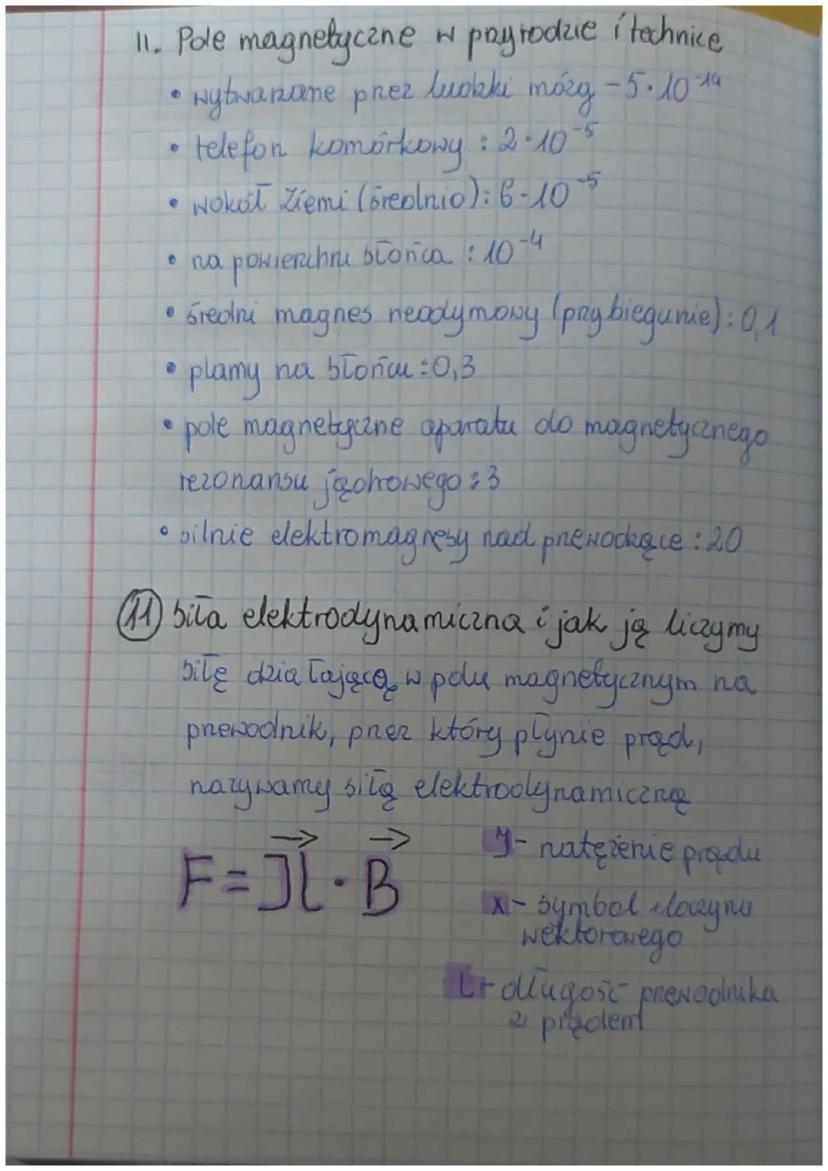 11. Pole magnetyczne w przyrodzie i technice
• wytwarzane przez ludzki mózg - 5·10⁻¹⁴
• telefon komórkowy : 2·10⁻⁵
• wokół Ziemi (średnio): 6·10⁻⁵
• na powierzchni słońca : 10⁻⁴
• średni magnes neodymowy (przy biegunie): 0,1
• plamy na słońcu : 0,3
• pole magnetyczne aparatu do magnetycznego
rezonansu jądrowego : 3
• silnie elektromagnesy nad przewodzące : 20
11 siła elektrodynamiczna i jak ją liczymy
siłę działającą w polu magnetycznym na
przewodnik, przez który płynie prąd,
nazywamy siłą elektrodynamiczną
F = I\vec{l} · \vec{B}
y - natężenie prądu
x - symbol iloczynu
wektorowego
l - długość przewodnika
z prądem